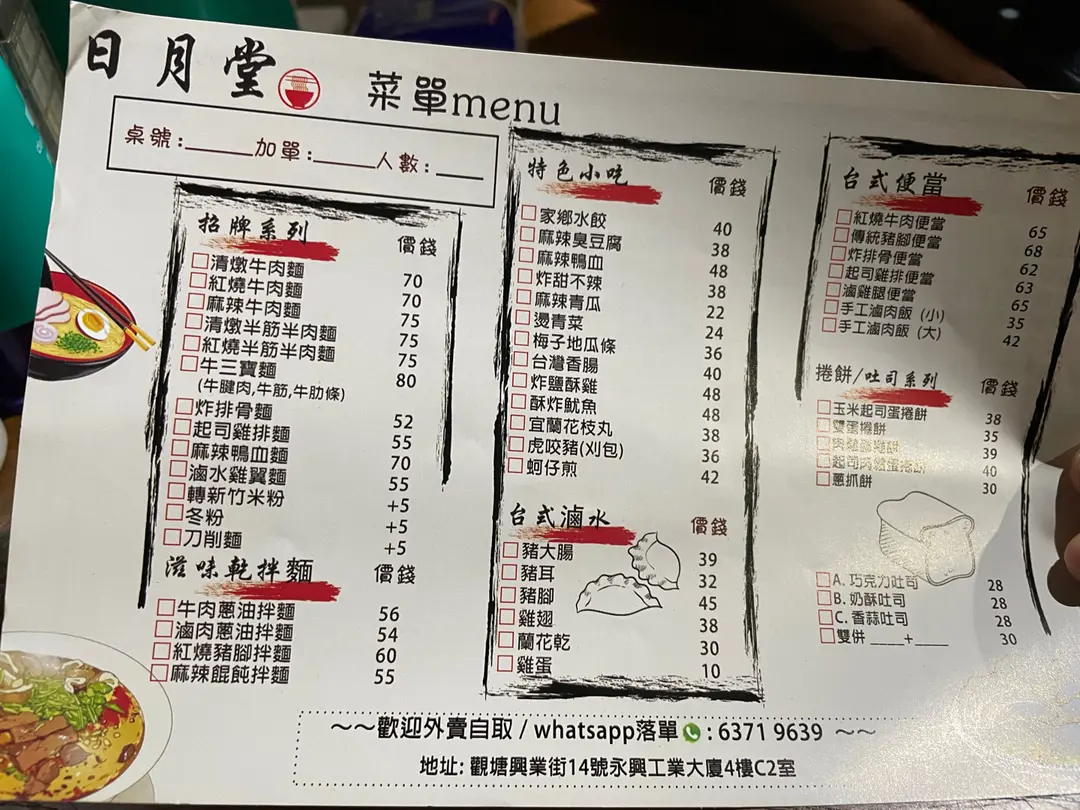 日月堂
菜單menu
桌號:______加單:_____人數:____
招牌系列 價錢
清燉牛肉麵 70
紅燒牛肉麵 70
麻辣牛肉麵 75
清燉半筋半肉麵 75
紅燒半筋半肉麵 75
牛三寶麵 80
(牛腱肉,牛筋,牛肋條)
炸排骨麵 52
起司雞排麵 55
麻辣鴨血麵 70
滷水雞翼麵 55
轉新竹米粉 +5
冬粉 +5
刀削麵 +5
滋味乾拌麵 價錢
牛肉蔥油拌麵 56
滷肉蔥油拌麵 54
紅燒豬腳拌麵 60
麻辣餛飩拌麵 55
特色小吃 價錢
家鄉水餃 40
麻辣臭豆腐 38
麻辣鴨血 48
炸甜不辣 38
麻辣青瓜 22
燙青菜 24
梅子地瓜條 36
台灣香腸 40
炸鹽酥雞 48
酥炸魷魚 48
宜蘭花枝丸 38
虎咬豬(刈包) 36
蚵仔煎 42
台式滷水 價錢
豬大腸 39
豬耳 32
豬腳 45
雞翅 38
蘭花乾 30
雞蛋 10
台式便當 價錢
紅燒牛肉便當 65
傳統豬腳便當 68
炸排骨便當 62
起司雞排便當 63
滷雞腿便當 65
手工滷肉飯 (小) 35
手工滷肉飯 (大) 42
捲餅/吐司系列 價錢
玉米起司蛋捲餅 38
雙蛋捲餅 35
肉鬆蛋捲餅 39
起司肉鬆蛋捲餅 40
蔥抓餅 30
A. 巧克力吐司 28
B. 奶酥吐司 28
C. 香蒜吐司 28
雙併 ____+____ 30
～～歡迎外賣自取 / whatsapp落單 : 6371 9639 ～～
地址: 觀塘興業街14號永興工業大廈4樓C2室